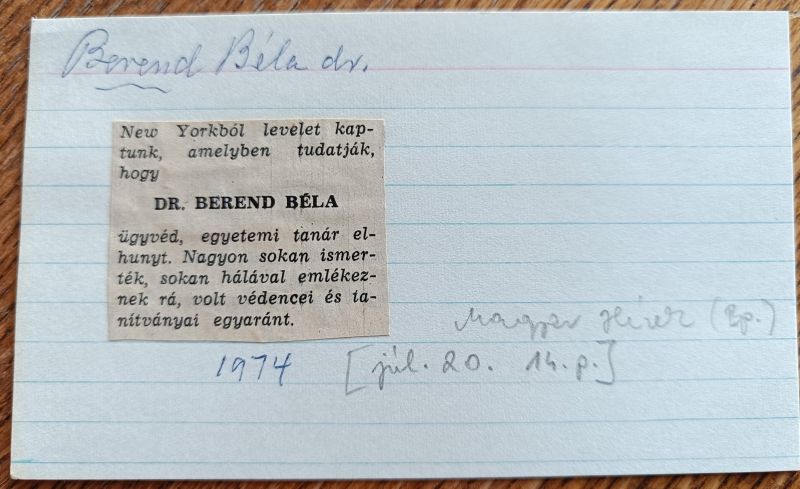 Berend Béla dr.
New Yorkból levelet kap-
tunk, amelyben tudatják,
hogy
DR. BEREND BÉLA
ügyvéd, egyetemi tanár el-
hunyt. Nagyon sokan ismer-
ték, sokan hálával emlékez-
nek rá, volt védencei és ta-
nítványai egyaránt.
Magyar Hírek (Bp.)
1974 [júl. 20. 14. p.]